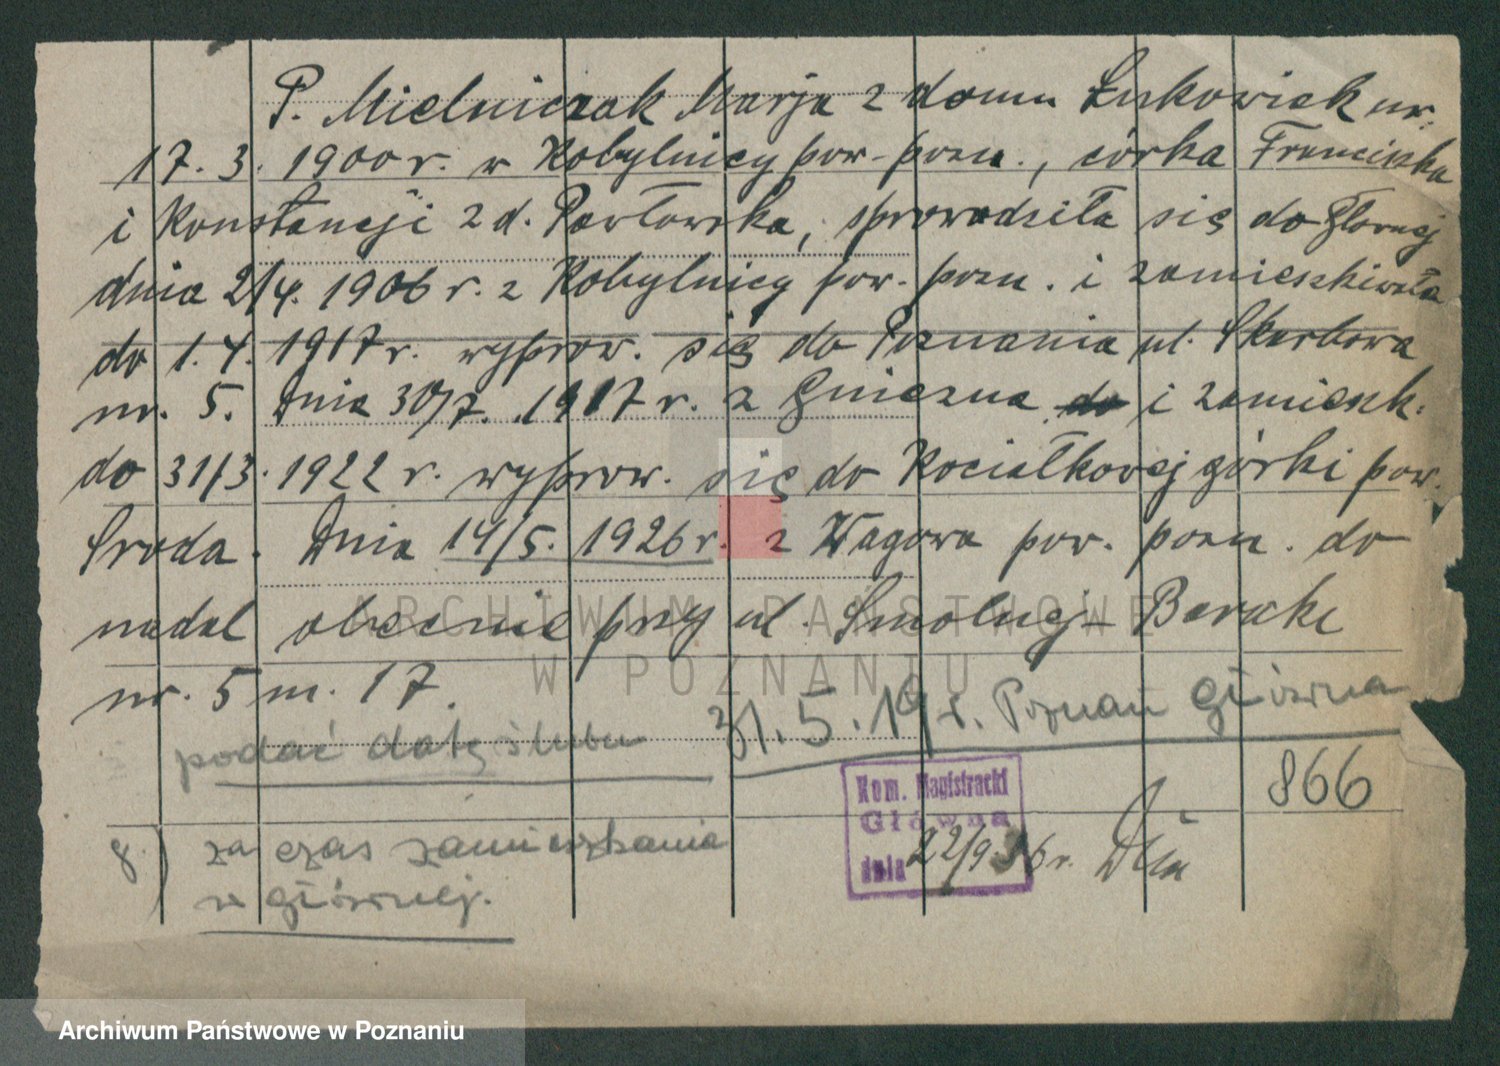 P. Mielniczak Marja z domu Łukowiak ur.
17. 3. 1900 r. w Kobylnicy pow. pozn., córka Franciszka
i Konstancji z d. Pawłowska, sprowadziła się do Głównej
dnia 2/4. 1906 r. z Kobylnicy pow. pozn. i zamieszkiwała
do 1. 4. 1917 r. wyprow. się do Poznania ul. Skarbowa
nr. 5. Dnia 30/7. 1917 r. z Gniezna do i zamieszk.
do 31/3. 1922 r. wyprow. się do Kociałkowej górki pow.
Środa. Dnia 14/5. 1926 r. z Wagowa pow. pozn. do
nadal obecnie przy ul. Smolnej Baraki
nr. 5 m. 17.
podać datę ślubu 31. 5. Poznań Główna
866
Kom. Magistracki
Główna
dnia 22/9. 36 r.
8.) za czas zamieszkania
w głównej.
ARCHIWUM PAŃSTWOWE
W POZNANIU
Archiwum Państwowe w Poznaniu